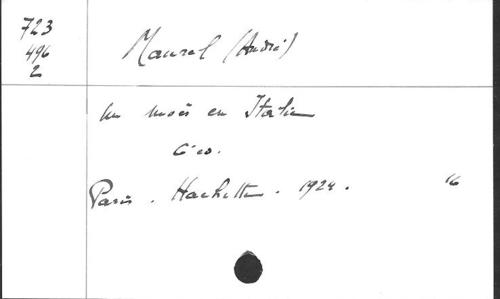 723
496
2
Maurel (André)
Un mois en Italie
6° éd.
Paris. Hachette. 1924.
16